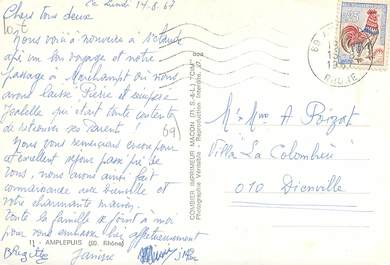 Ce Lundi 14-8-67
Chers tous deux
Nous voilà à nouveau à
après un bon voyage et notre
passage à Marchampt où nous
avons laissé Pierre et
Isabelle qui était toute contente
de retrouver ses Parents!
Nous vous remercions encore pour
cet excellent séjour passé près de
vous, nous avons ainsi fait
connaissance avec
votre charmante maison.
Toute la famille se joint à moi
pour vous embrasser bien affectueusement
Brigitte Janine
11 - AMPLEPUIS (69. Rhône)
69
COMBIER IMPRIMEUR MACON (71. S.-&-L.) "CIM"
Photographie Véritable - Reproduction Interdite
RHONE
0,25
Mr Mme A Poizat
Villa "La Colombière"
010 Dienville